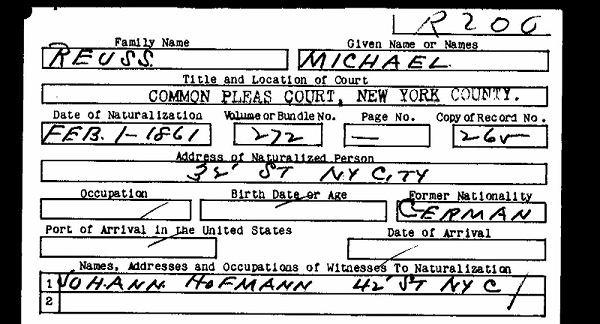 R200
Family Name Given Name or Names
REUSS. MICHAEL
Title and Location of Court
COMMON PLEAS COURT, NEW YORK COUNTY.
Date of Naturalization Volume or Bundle No. Page No. Copy of Record No.
FEB. 1-1861 272 — 265
Address of Naturalized Person
32' ST NY CITY
Occupation Birth Date or Age Former Nationality
GERMAN
Port of Arrival in the United States Date of Arrival
Names, Addresses and Occupations of Witnesses To Naturalization
1 JOHANN HOFMANN 42' ST NYC
2